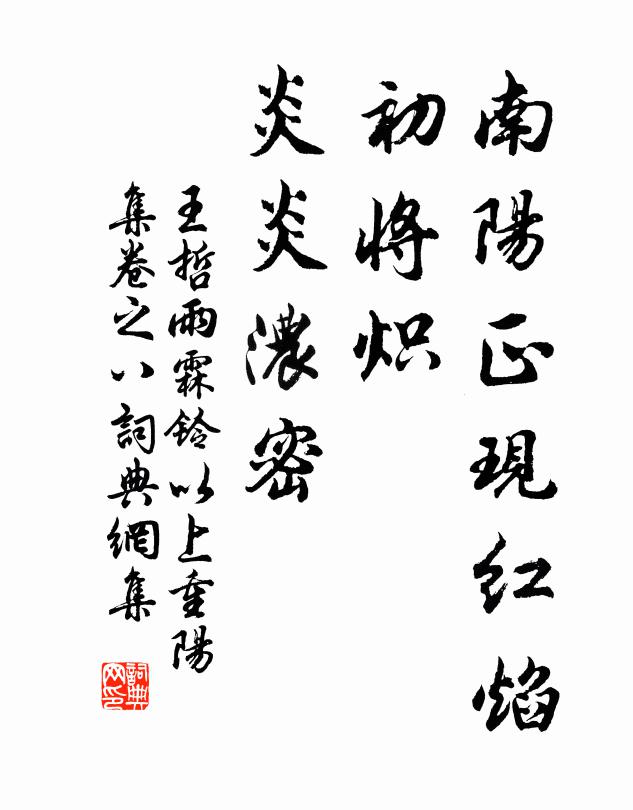 南陽正現紅焰
初將炽
炎炎濃密
王哲雨霖鈴以上重陽
集卷之八詞典網集
詞典網印